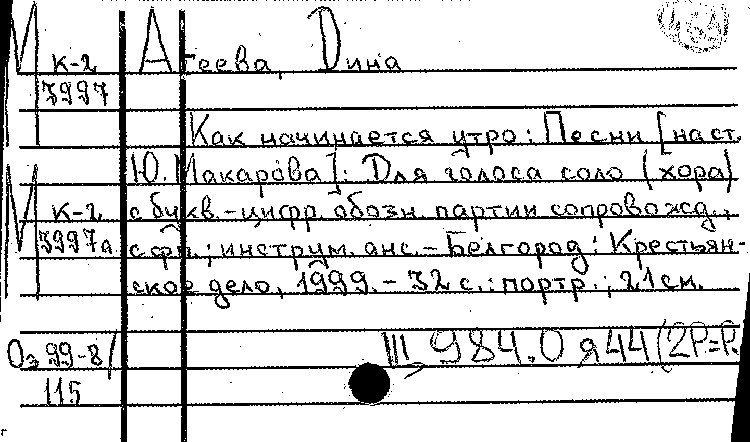 М к-2 Агеева, Дина
3997
Как начинается утро: Песни [на ст.
Ю. Макарова]: Для голоса соло (хора)
М к-2 с букв.-цифр. обозн. партии сопровожд.,
3997а с фп.; инструм. анс. - Белгород: Крестьян-
ское дело, 1999. - 32 с.: портр.; 21 см.
Оэ 99-8/ III, 984.0 я44(2Р=Р.
115